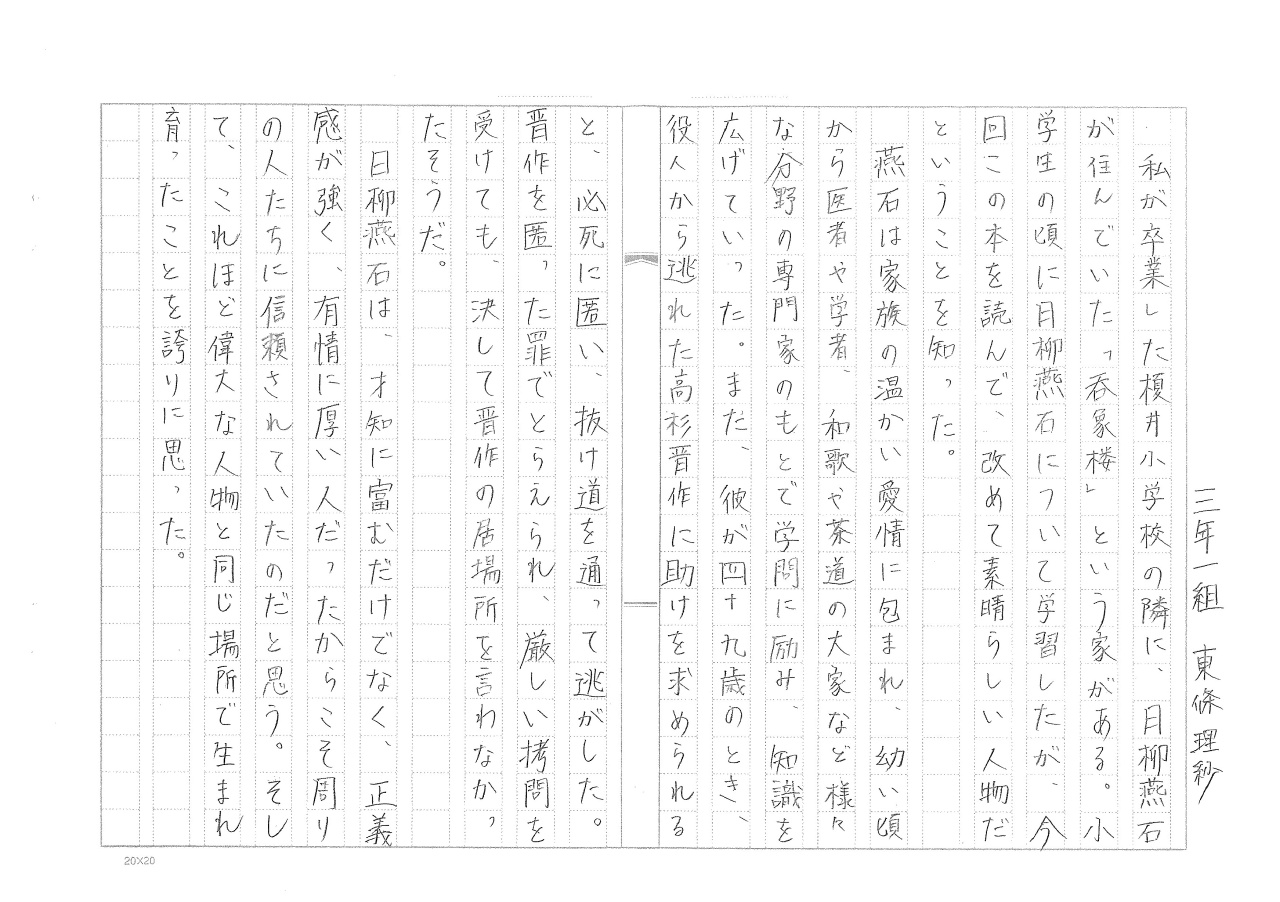 三年一組 東條理紗
私が卒業した榎井小学校の隣に、日柳燕石
が住んでいた「呑象楼」という家がある。小
学生の頃に日柳燕石について学習したが、今
回この本を読んで、改めて素晴らしい人物だ
ということを知った。
燕石は家族の温かい愛情に包まれ、幼い頃
から医者や学者、和歌や茶道の大家など様々
な分野の専門家のもとで学問に励み、知識を
広げていった。また、彼が四十九歳のとき、
役人から逃れた高杉晋作に助けを求められる
と、必死に匿い、抜け道を通って逃がした。
晋作を匿った罪でとらえられ、厳しい拷問を
受けても、決して晋作の居場所を言わなかっ
たそうだ。
日柳燕石は、才知に富むだけでなく、正義
感が強く、有情に厚い人だったからこそ周り
の人たちに信頼されていたのだと思う。そし
て、これほど偉大な人物と同じ場所で生まれ
育ったことを誇りに思った。
20×20